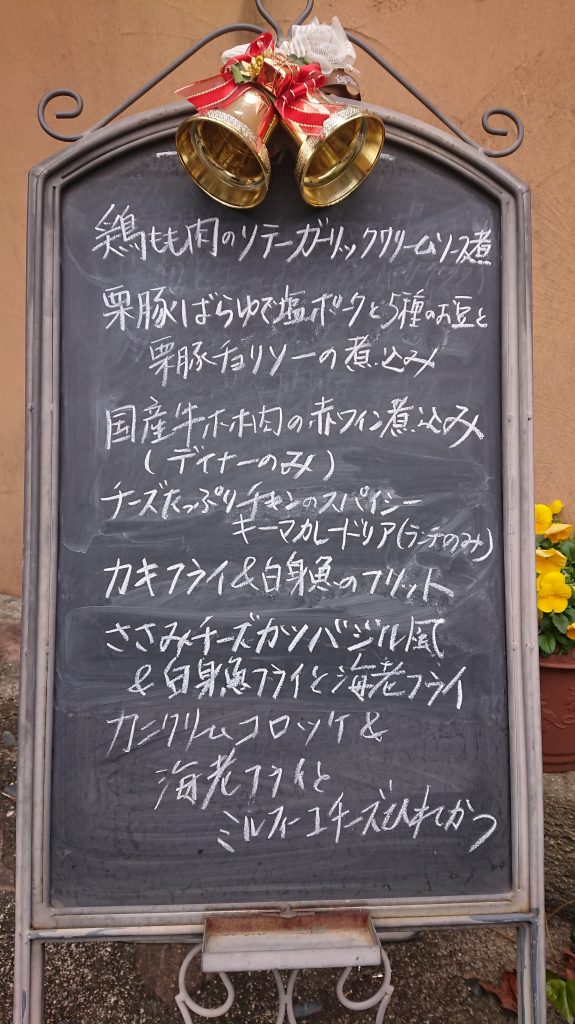 鶏もも肉のソテーガーリッククリームソース煮
栗豚ばらゆで塩ポークと5種のお豆と
栗豚チョリソーの煮込み
国産牛ホホ肉の赤ワイン煮込み
(デイナーのみ)
チーズたっぷりチキンのスパイシー
キーマカレードリア(ランチのみ)
カキフライ&白身魚のフリット
ささみチーズカツバジル風
&白身魚フライと海老フライ
カニクリームコロッケ&
海老フライと
ミルフィーユチーズひれかつ